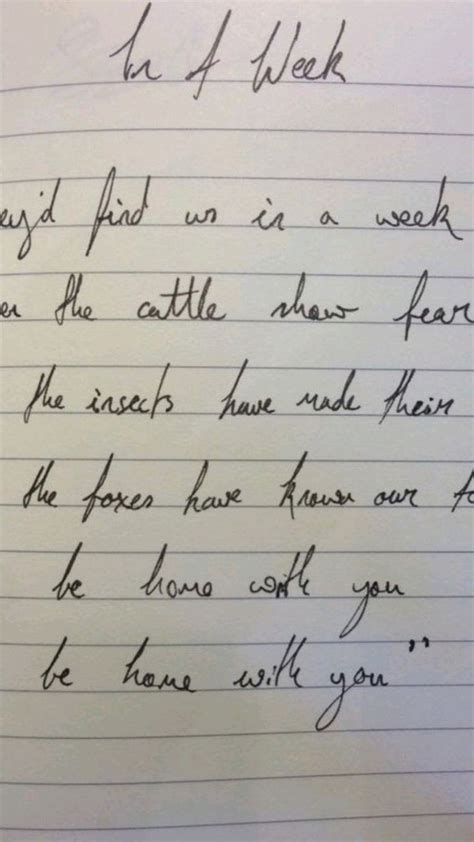 In A Week
ey'd find us in a week
en the cattle show fear
the insects have made their
the foxes have known our ta
be home with you
be home with you"